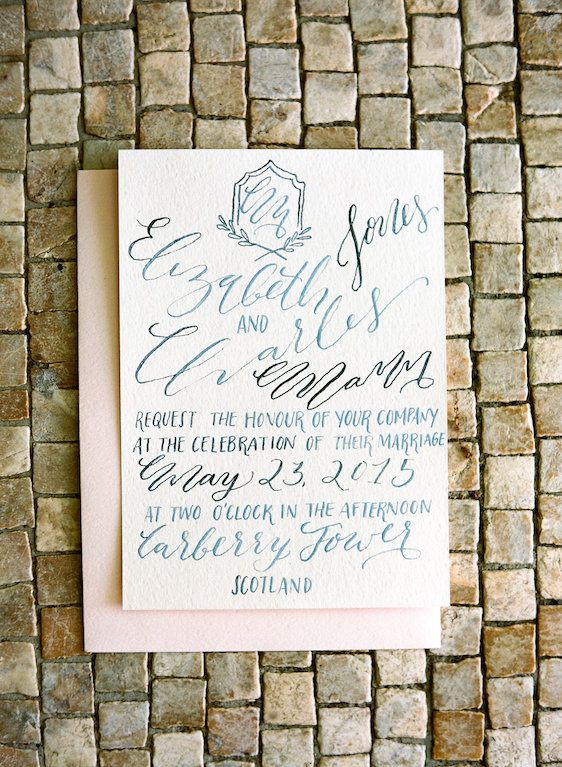 Elizabeth Jones
AND
Charles
Mann
REQUEST THE HONOUR OF YOUR COMPANY
AT THE CELEBRATION OF THEIR MARRIAGE
May 23, 2015
AT TWO O'CLOCK IN THE AFTERNOON
Carberry Tower
SCOTLAND